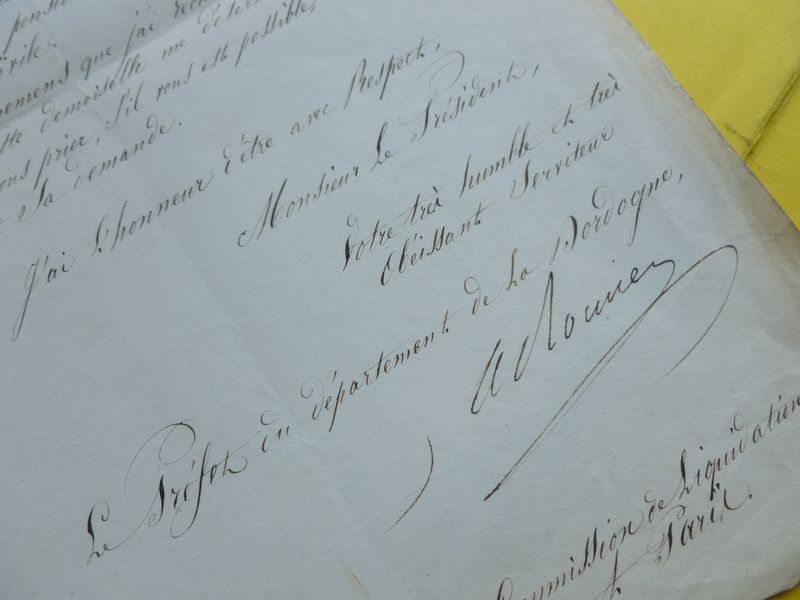 pension
rile.
nemens que j'ai reçu
demoiselle me déterm
ous prier, s'il vous est possible,
Sa demande.
J'ai L'honneur d'être avec Respect,
Monsieur Le Président,
Votre très humble et très
Obéissant Serviteur
Le Préfet du département de La Dordogne,
Commission de Liquidation
Paris.